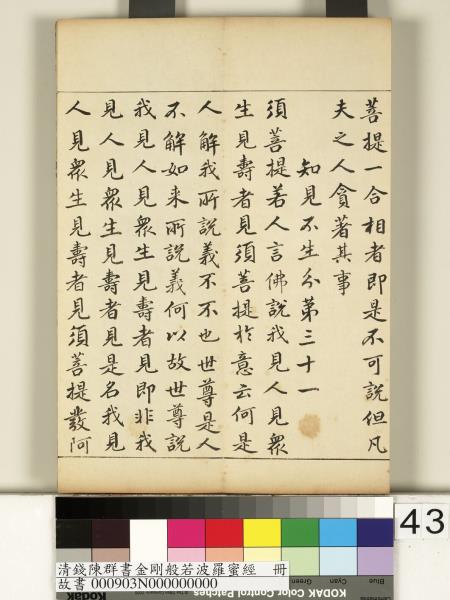 菩提一合相者即是不可說但凡
夫之人貪著其事
知見不生分第三十一
須菩提若人言佛說我見人見衆
生見壽者見須菩提於意云何是
人解我所說義不不也世尊是人
不解如來所說義何以故世尊說
我見人見衆生見壽者見即非我
見人見衆生見壽者見是名我見
人見衆生見壽者見須菩提發阿
43
清錢陳群書金剛般若波羅蜜經 冊
故書 000903N000000000
Blue Cyan Green
KODAK Color Control Patches
Kodak